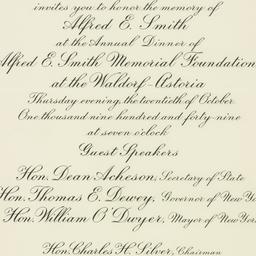 invites you to honor the memory of
Alfred E. Smith
at the Annual Dinner of
Alfred E. Smith Memorial Foundation
at the Waldorf-Astoria
Thursday evening, the twentieth of October
One thousand nine hundred and forty-nine
at seven o'clock
Guest Speakers
Hon. Dean Acheson, Secretary of State
Hon. Thomas E. Dewey, Governor of New Yo
Hon. William O'Dwyer, Mayor of New York
Hon. Charles H. Silver, Chairman